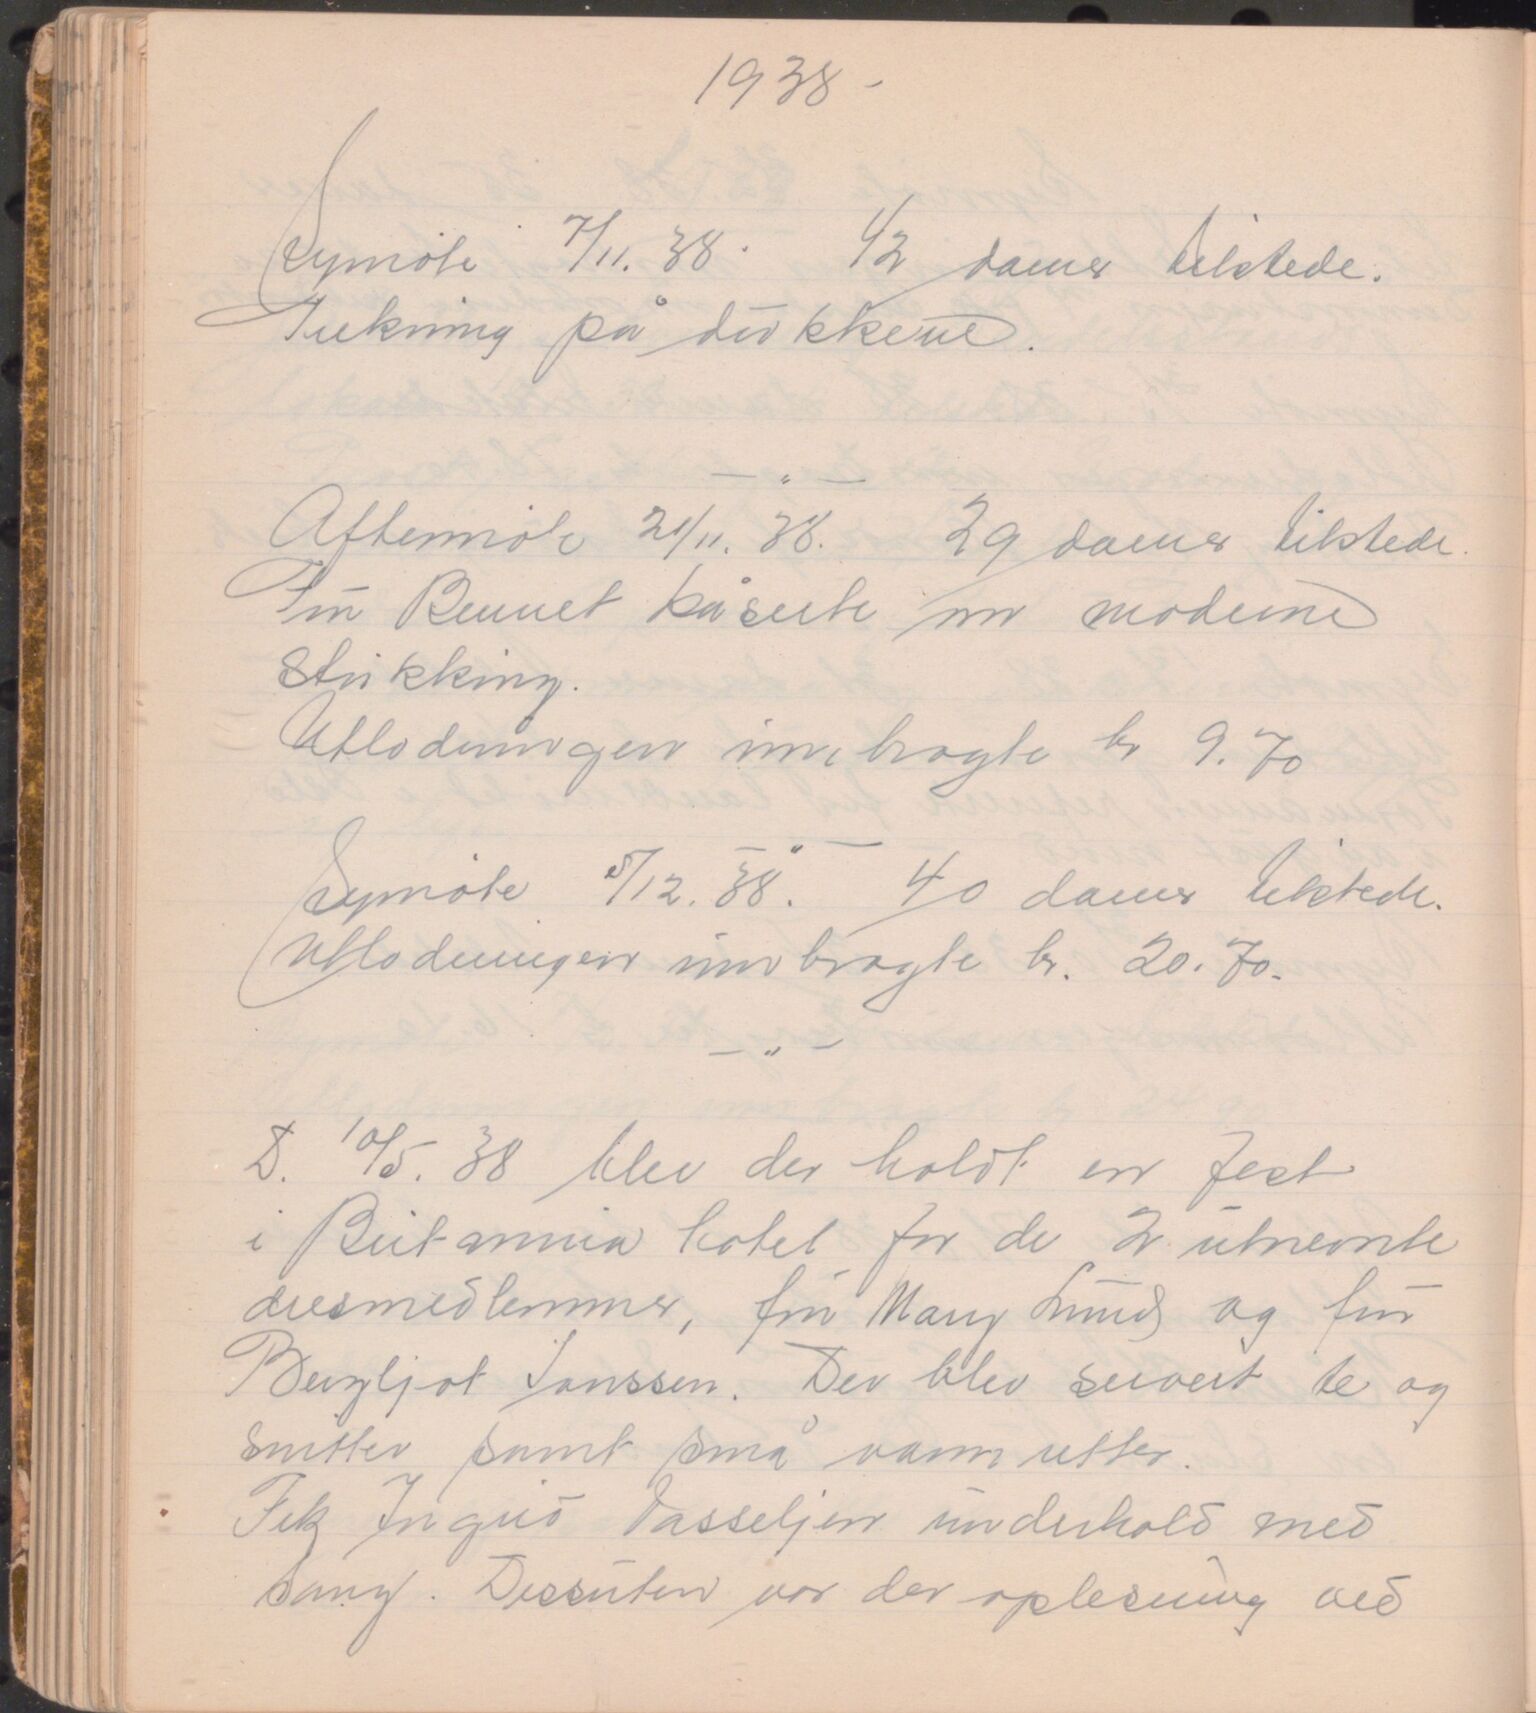 1938 -
Symöte 7/11. 38. 42 damer tilstede.
Trekning på dukkene.
— " —
Aftenmöte 21/11. 38. 29 damer tilstede.
Fru Bennet kåserte om moderne
strikking.
Utlodningen innbragte kr 9.70
— " —
Symöte 5/12. 38. 40 damer tilstede.
Utlodningen innbragte kr. 20.70.
— " —
D. 10/5. 38 blev der holdt en fest
i Britannia hotel for de 2 utnevnte
æresmedlemmer, fru Mary Lund og fru
Bergljot Janssen. Der blev servert te og
snitter samt små vannutter.
Frk Ingrid Vasseljen underholdt med
sang. Dessuten var der oplesning ved